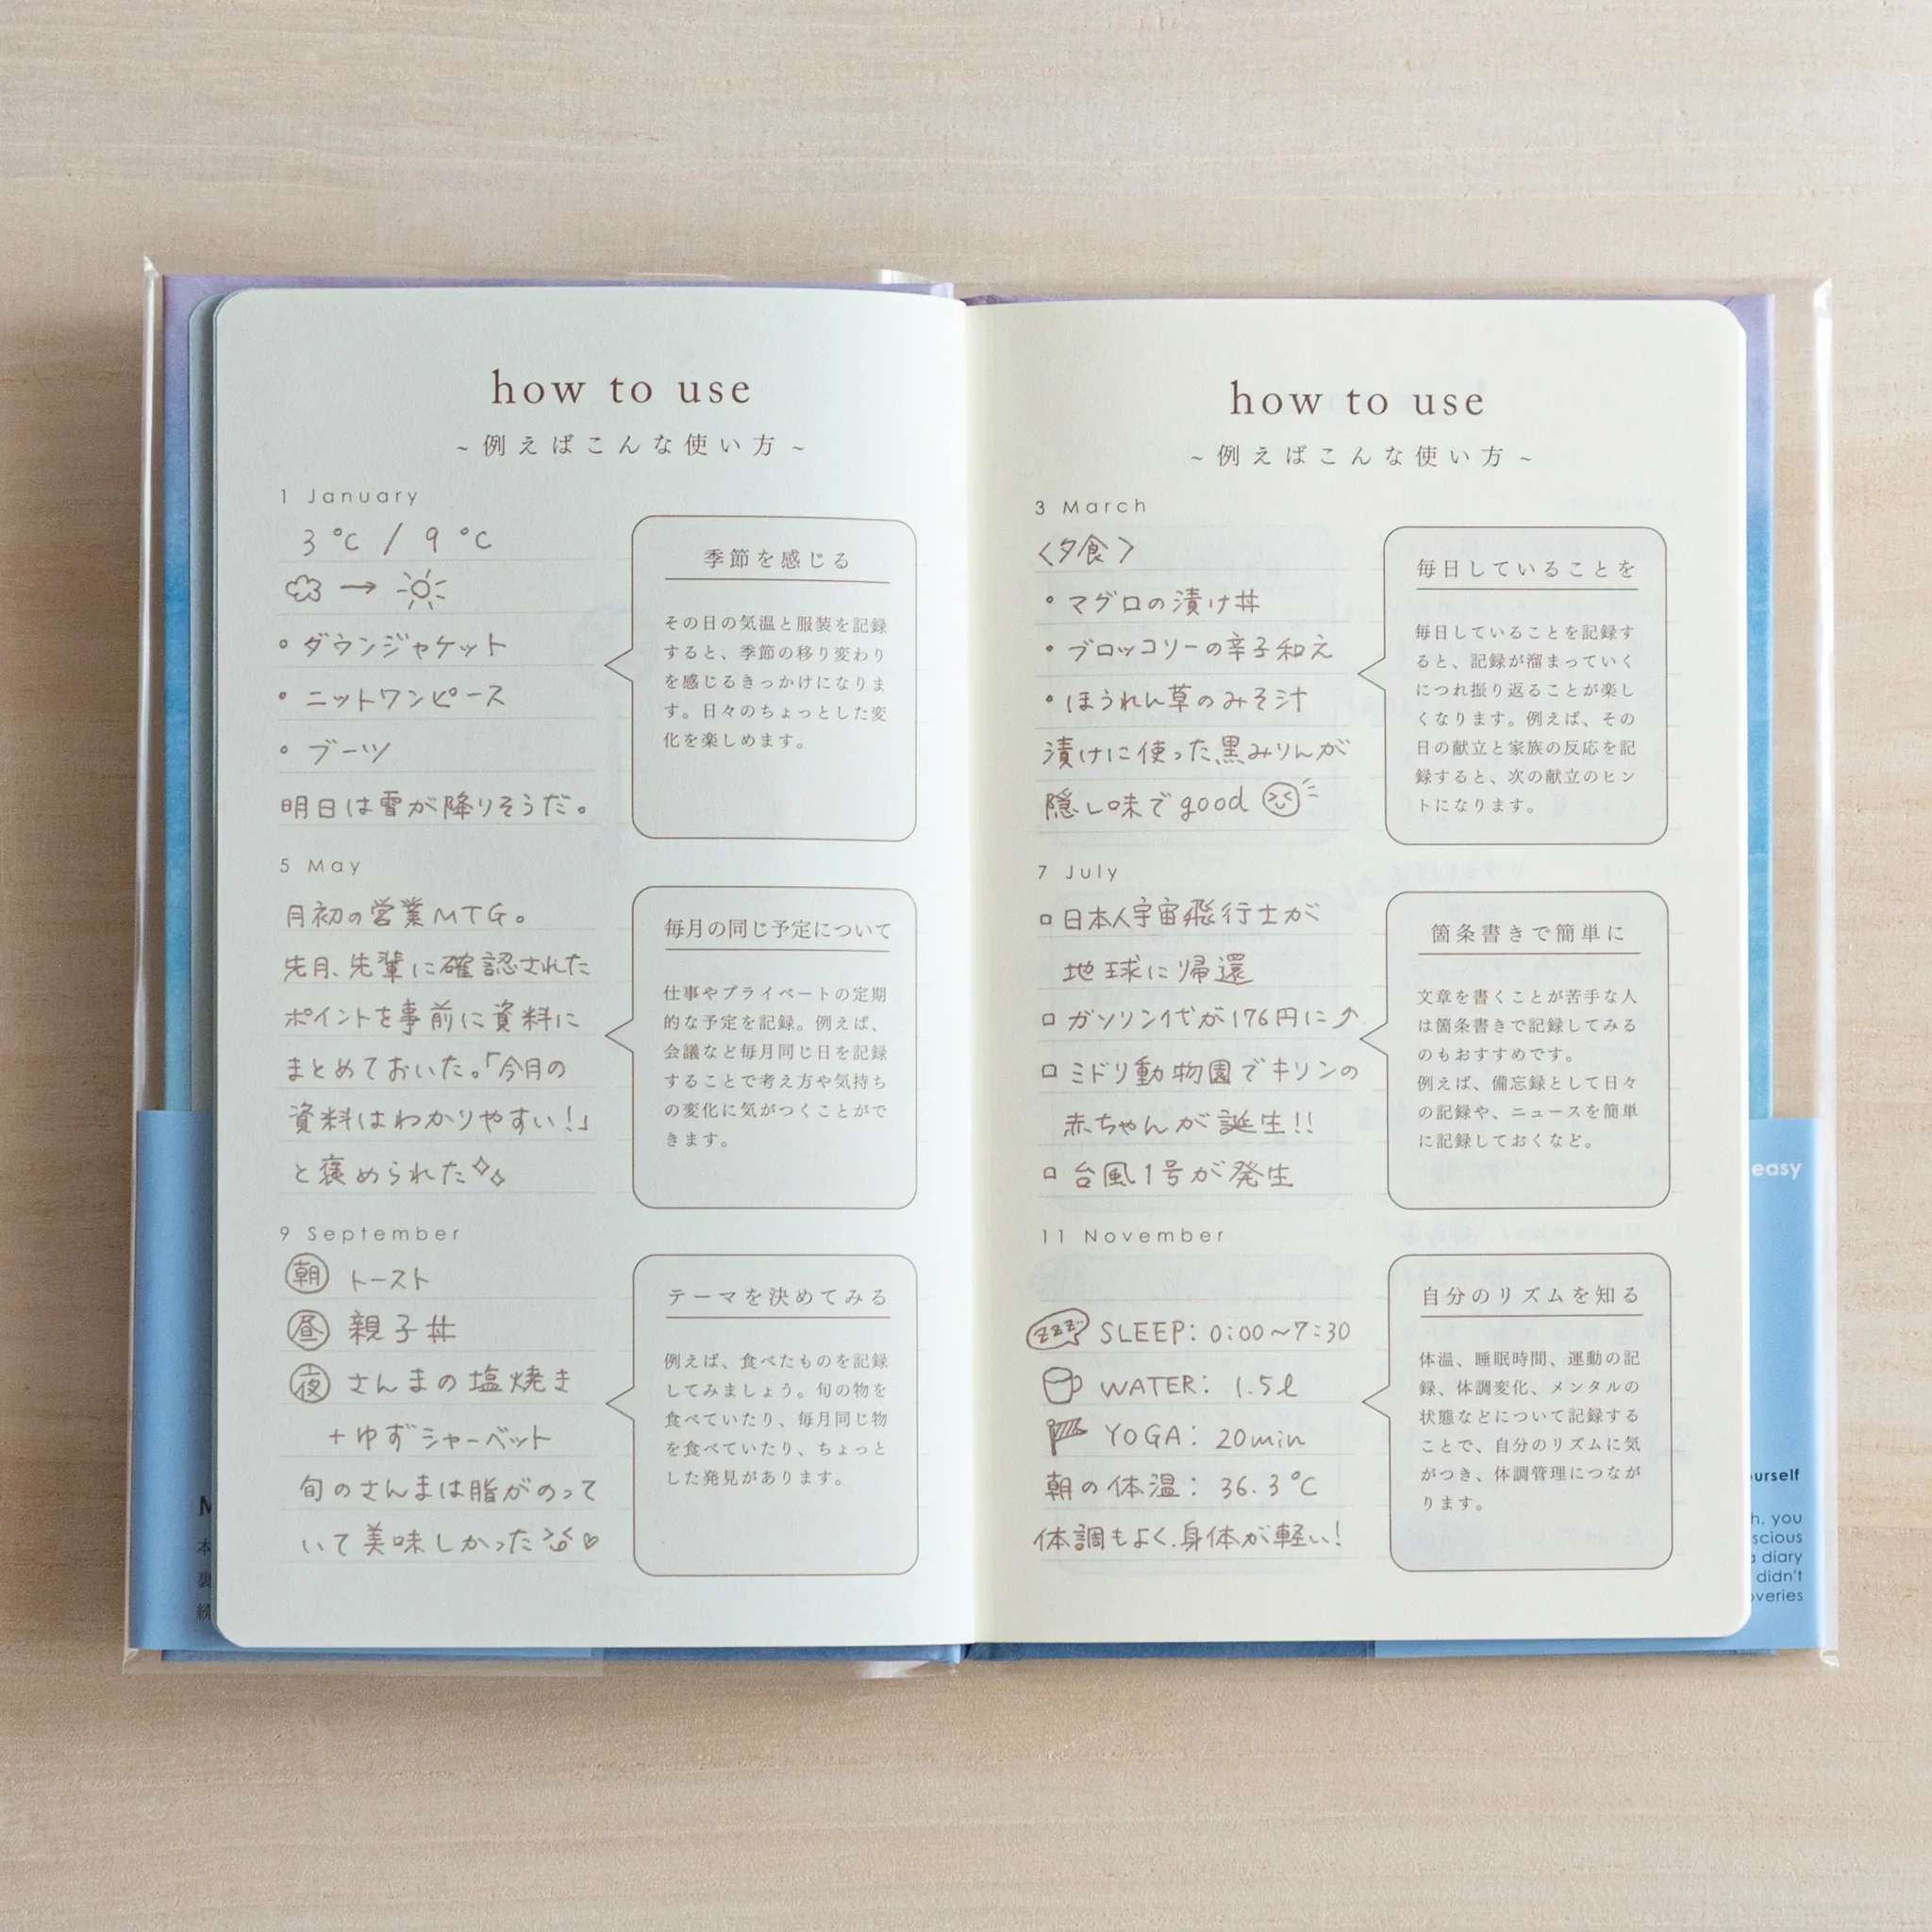 how to use
~例えばこんな使い方~
1 January
3℃ / 9℃
→
・ダウンジャケット
・ニットワンピース
・ブーツ
明日は雪が降りそうだ。
季節を感じる
その日の気温と服装を記録
すると、季節の移り変わり
を感じるきっかけになりま
す。日々のちょっとした変
化を楽しめます。
5 May
月初の営業MTG。
先月、先輩に確認された
ポイントを事前に資料に
まとめておいた。「今月の
資料はわかりやすい!」
と褒められた
毎月の同じ予定について
仕事やプライベートの定期
的な予定を記録。例えば、
会議など毎月同じ日を記録
することで考え方や気持ち
の変化に気がつくことがで
きます。
9 September
朝 トースト
昼 親子丼
夜 さんまの塩焼き
+ゆずシャーベット
旬のさんまは脂がのって
いて美味しかった♡
テーマを決めてみる
例えば、食べたものを記録
してみましょう。旬の物を
食べていたり、毎月同じ物
を食べていたり、ちょっと
した発見があります。
how to use
~例えばこんな使い方~
3 March
〈夕食〉
・マグロの漬け丼
・ブロッコリーの辛子和え
・ほうれん草のみそ汁
漬けに使った黒みりんが
隠し味でgood
毎日していることを
毎日していることを記録す
ると、記録が溜まっていく
につれ振り返ることが楽し
くなります。例えば、その
日の献立と家族の反応を記
録すると、次の献立のヒン
トになります。
7 July
□日本人宇宙飛行士が
地球に帰還
□ガソリン代が176円に⤴
□ミドリ動物園でキリンの
赤ちゃんが誕生!!
□台風1号が発生
箇条書きで簡単に
文章を書くことが苦手な人
は箇条書きで記録してみる
のもおすすめです。
例えば、備忘録として日々
の記録や、ニュースを簡単
に記録しておくなど。
11 November
zzz.. SLEEP: 0:00~7:30
WATER: 1.5ℓ
YOGA: 20min
朝の体温: 36.3℃
体調もよく、身体が軽い!
自分のリズムを知る
体温、睡眠時間、運動の記
録、体調変化、メンタルの
状態などについて記録する
ことで、自分のリズムに気
がつき、体調管理につなが
ります。
easy
urself
h, you
scious
a diary
didn't
overies